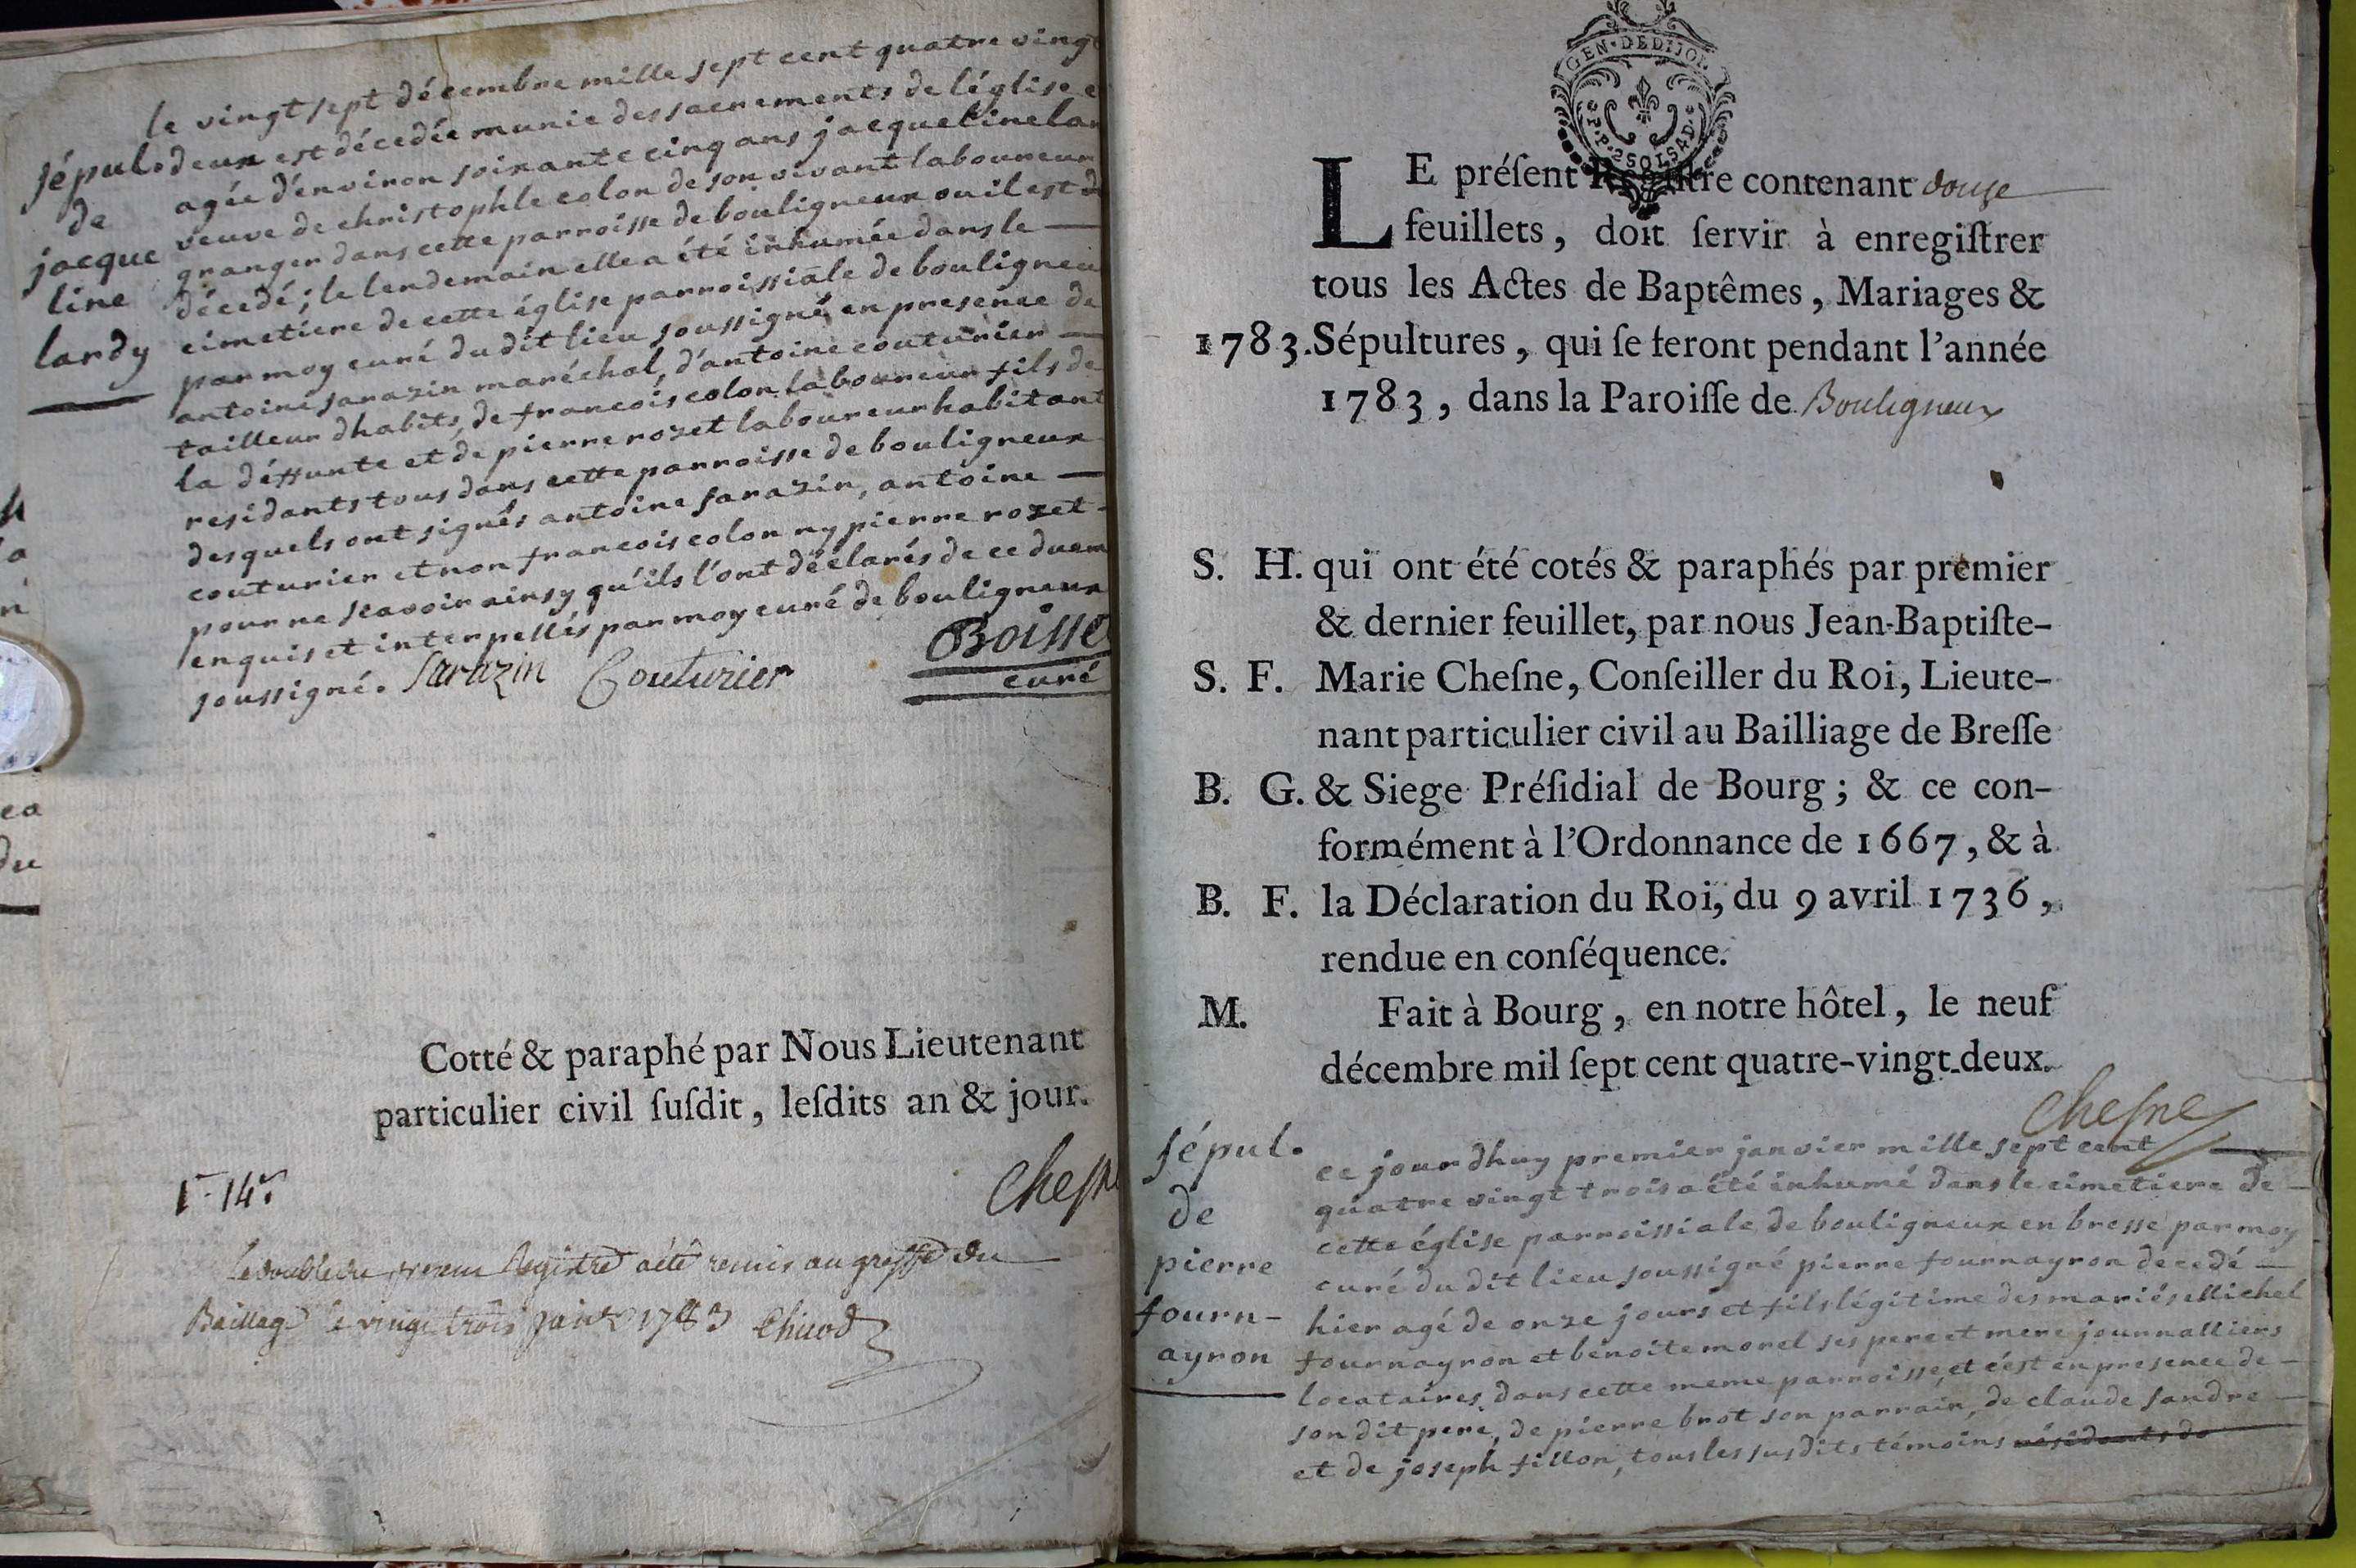 le vingt sept décembre mille sept cent quatre vingt
deux est décedée munie des sacrements de léglise e
agée d'environ soixante cinq ans jacqueline lar
veuve de christophle colon de son vivant laboureur
granger dans cette parroisse de bouligneux ou il est d
décedé; le lendemain elle a été inhumée dans le
cimetiere de cette église parroissiale de bouligneu
par moy curé du dit lieu soussigné en presence de
antoine sarazin maréchal, d'antoine couturier
tailleur dhabits, de francois colon laboureur fils de
la déffunte et de pierre rozet laboureur habitant
residants tous dans cette parroisse de bouligneux
desquels ont signés antoine sarazin, antoine
couturier et non francois colon ny pierre rozet
pour ne scavoir ainsy qu'ils l'ont déclarés de ce duem
enquis et interpellés par moy curé de bouligneux
soussigné. Sarazin Couturier Boisse
curé
sépul.
de
jacque
line
lardy
Cotté & paraphé par Nous Lieutenant
particulier civil ſuſdit, leſdits an & jour.
Cheſn
Le double du present Registre a été remis au greffe du
Baillage le vingt trois janv 1783
LE préſent Regiſtre contenant douze
feuillets, doit ſervir à enregiſtrer
tous les Actes de Baptêmes, Mariages &
1783. Sépultures, qui ſe feront pendant l'année
1783, dans la Paroiſſe de Bouligneux
S. H. qui ont été cotés & paraphés par premier
& dernier feuillet, par nous Jean-Baptiſte-
S. F. Marie Cheſne, Conſeiller du Roi, Lieute-
nant particulier civil au Bailliage de Breſſe
B. G. & Siege Préſidial de Bourg; & ce con-
formément à l'Ordonnance de 1667, & à
B. F. la Déclaration du Roi, du 9 avril 1736,
rendue en conſéquence.
M. Fait à Bourg, en notre hôtel, le neuf
décembre mil ſept cent quatre-vingt-deux.
Cheſne
sépul.
de
pierre
fourn-
ayron
ce jourdhuy premier janvier mille sept cent
quatre vingt trois a été inhumé dans le cimetiere de
cette église parroissiale de bouligneux en bresse par moy
curé du dit lieu soussigné pierre fournayron decedé
hier agé de onze jours et fils légitime des mariés Michel
fournayron et benoite morel ses pere et mere journalliers
locataires dans cette meme parroisse, et c'est en presence de
son dit pere, de pierre brot son parrain, de claude sandre
et de joseph fillon, tous les susdits témoins résidents de